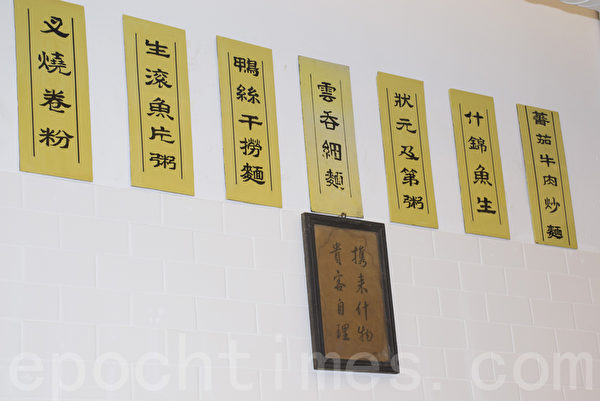 叉燒卷粉
生滾魚片粥
鴨絲干撈麵
雲吞細麵
狀元及第粥
什錦魚生
蕃茄牛肉炒麵
攜來什物
貴客自理
epochtimes.com